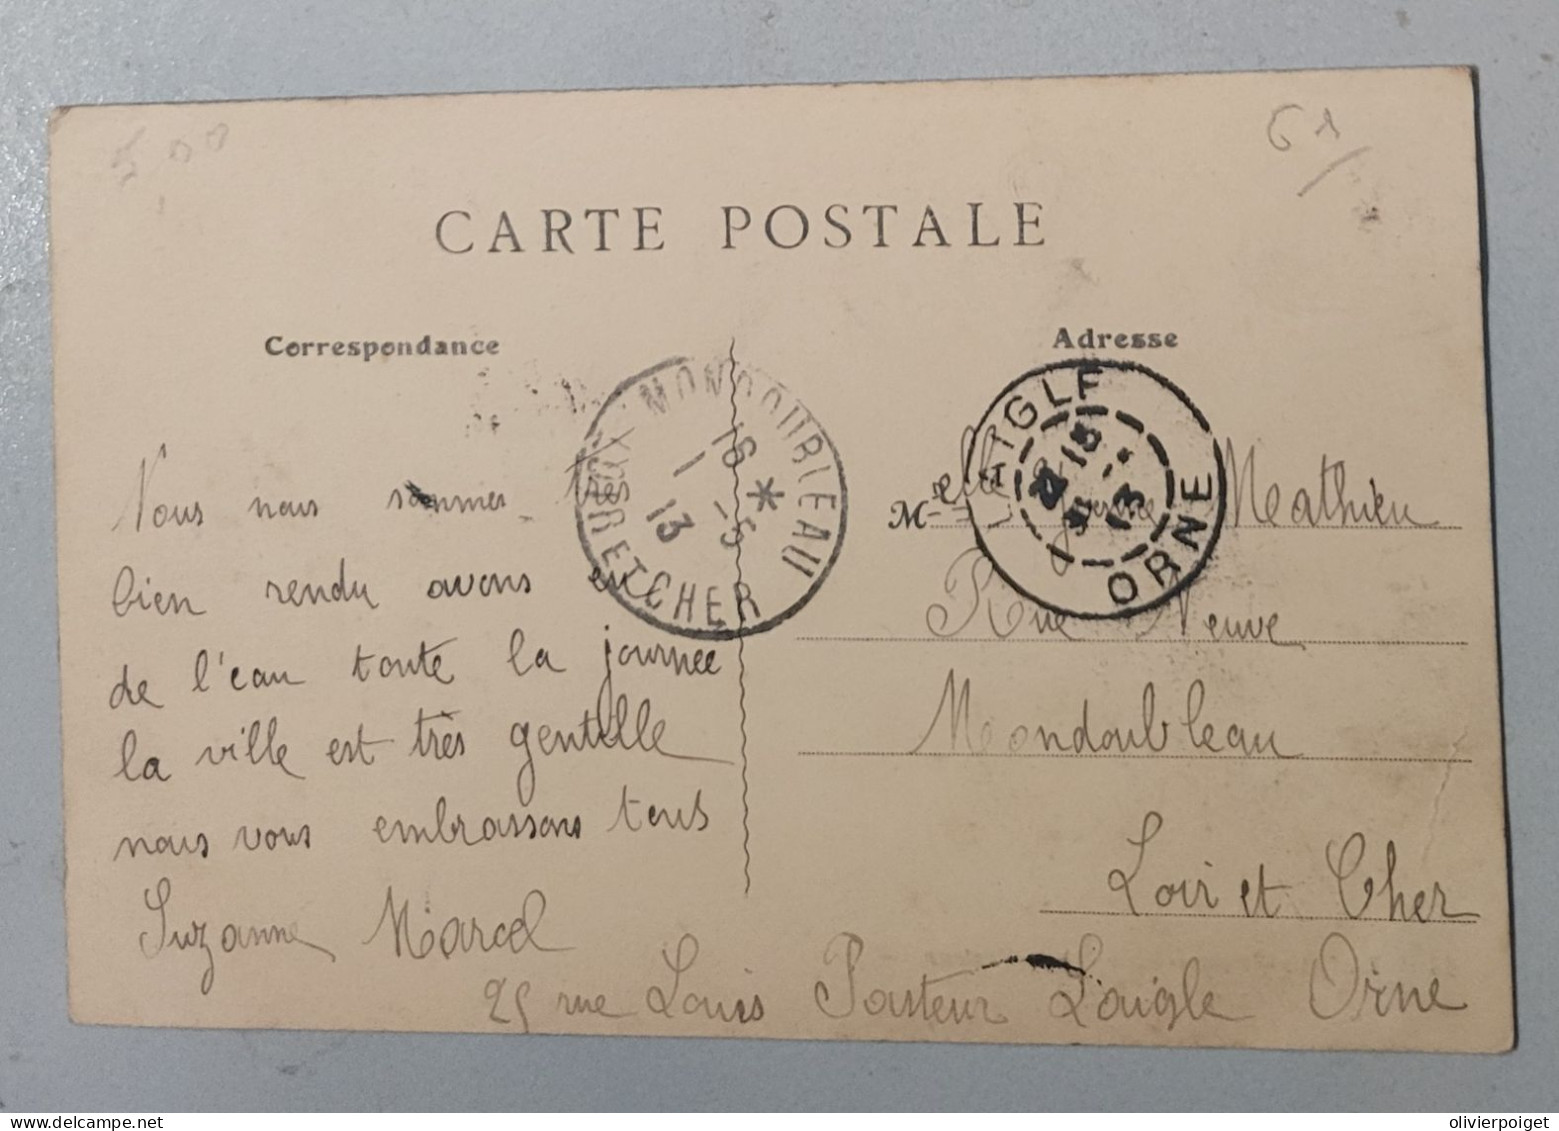 500
61
CARTE POSTALE
Correspondance
Adresse
MONDOUBLEAU
16 *
1 -5
13
LOIR ET CHER
LAIGLE
15
13
ORNE
Nous nous sommes très
bien rendu avons eu
de l'eau toute la journee
la ville est très gentille
nous vous embrassons tous
Suzanne Marcel
25 rue Louis Pasteur Laigle Orne
Melle Mathieu
Rue Neuve
Mondoubleau
Loir et Cher
olivierpoiget